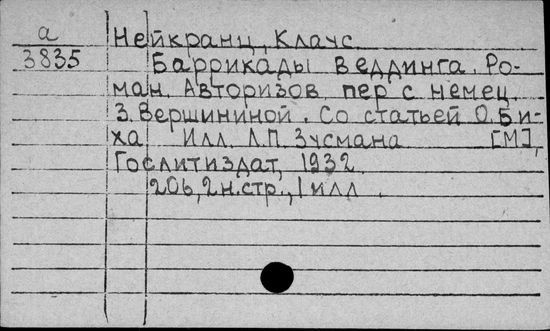 а Нейкранц, Клаус
3835 Баррикады Веддинга. Ро-
ман. Авторизов. пер с немец.
З. Вершининой. Со статьей О. Би-
ха Илл. Л.П. Зусмана [М],
Гослитиздат, 1932.
206, 2 н.стр., 1 илл.